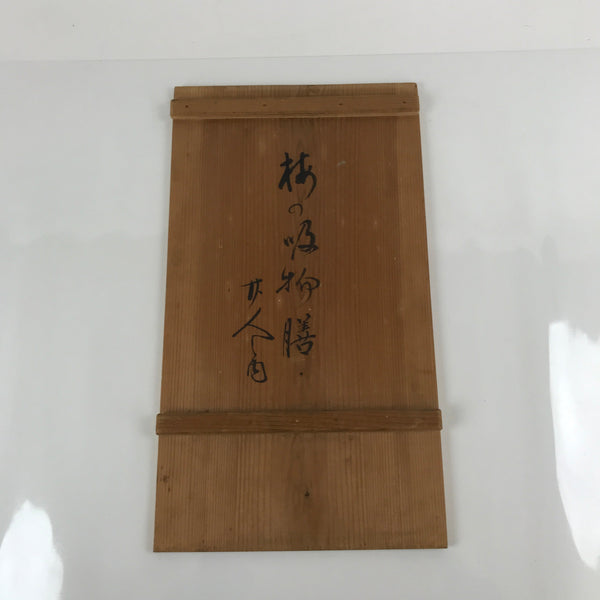 梅の吸物膳
廿人前